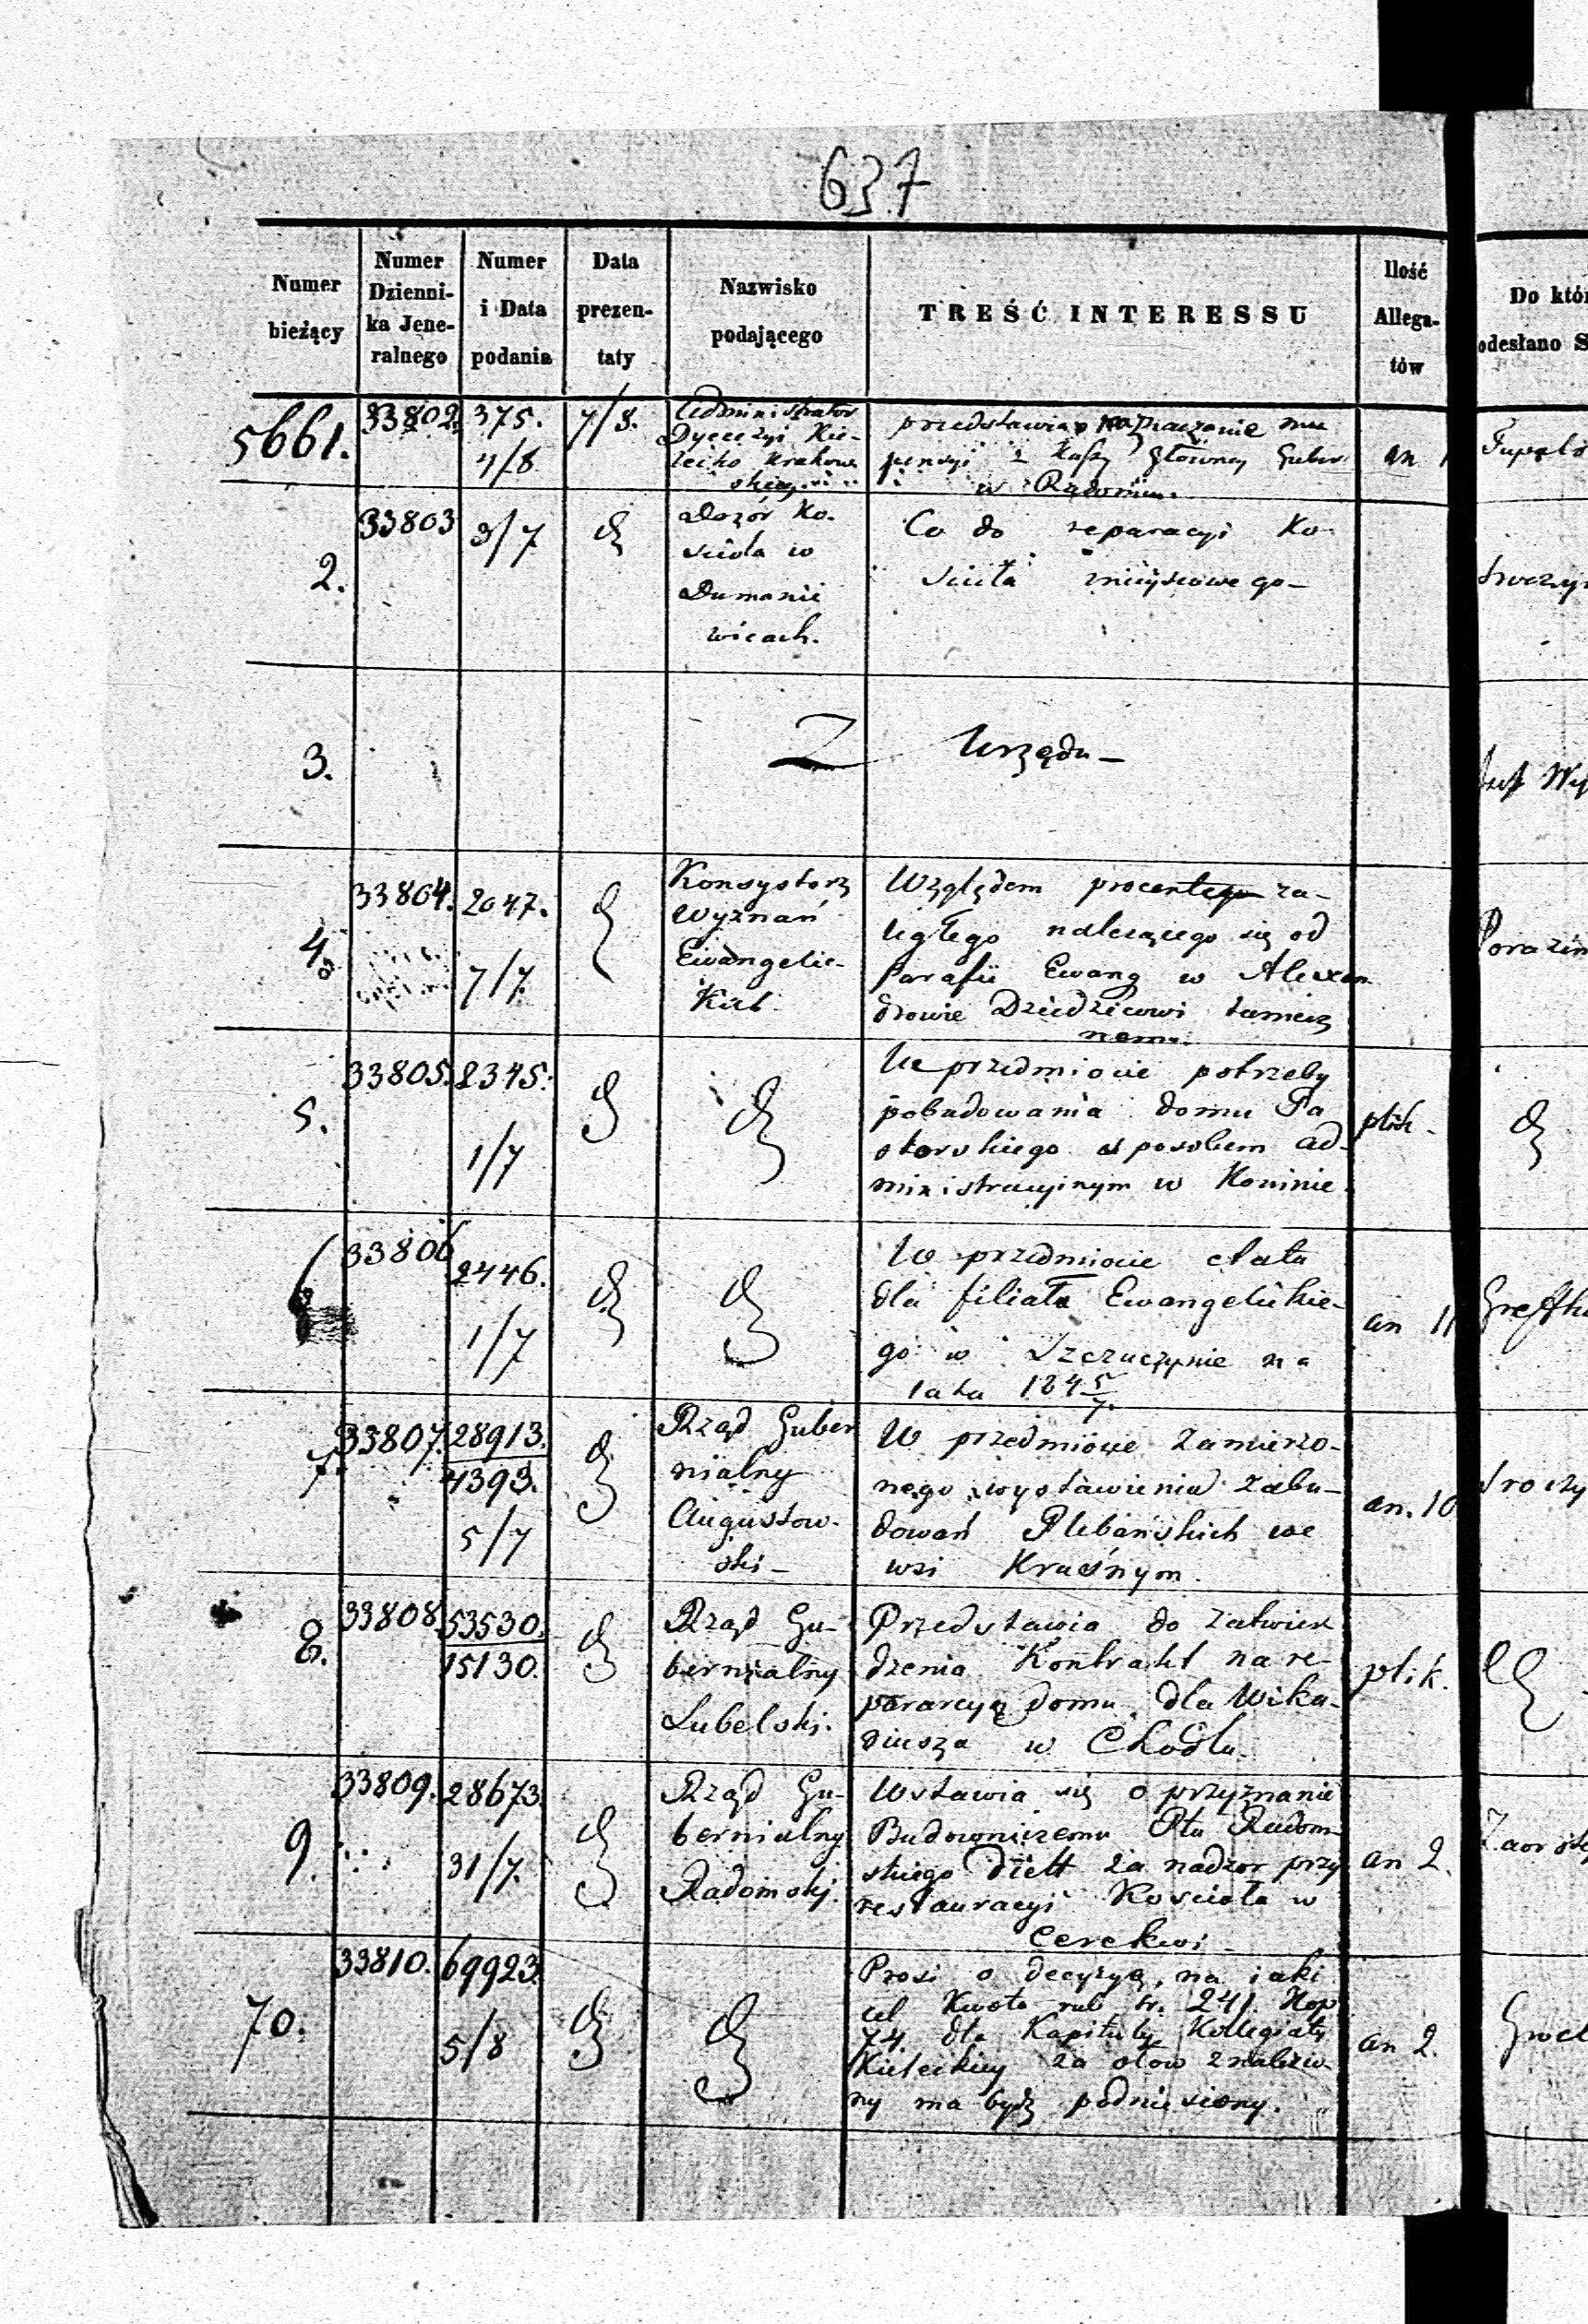 637
Numer bieżący | Numer Dziennika Jeneralnego | Numer i Data podania | Data prezentaty | Nazwisko podającego | TREŚĆ INTERESSU | Ilość Allegatów | Do któr odesłano S
5661. | 33802. | 375. 4/8 | 7/8.
Administrator
Dyecezyi Kie-
lecko Krakow
skiej
przedstawia mu
pensyi z Kassy Główney Guber
w Radomiu.
an 1
2. | 33803 | 3/7 | d
Dozór Ko-
scioła w
Dumanie
wicach.
Co do reparacyi Ko-
scioła miejscowego-
3.
Z Urzędu -
4. | 33804. | 2047. 7/7. | d
Konsystorz
Wyznań
Ewangelic-
kich
Względem procentego za-
ległego należącego się od
Parafii Ewang w Alexan
drowie Dziedzicowi tamecz
nemu.
5. | 33805. | 2345. 1/7 | d | d
We przedmiocie potrzeby
pobudowania domu Pa
storskiego sposobem ad-
ministracyjnym w Koninie.
plik- | d
6 | 33806 | 2446. 1/7 | d | d
W przedmiocie etatu
dla filiału Ewangelickie-
go w Szczuczynie na
lata 1845/7.
an 11
7. | 33807. | 28913. 4393. 5/7 | d
Rząd Guber
nialny
Augustow-
ski-
W przedmiocie zamierzo-
nego wystawienia zabu-
dowań Plebańskich we
wsi Kraśnym.
an. 10
8. | 33808. | 53530. 15130. | d
Rząd Gu-
bernialny
Lubelski.
Przedstawia do zatwier
dzenia Kontrakt na re-
paracyą domu dla Wika-
riusza w Chodlu.
plik. | d
9. | 33809. | 28673. 31/7. | d
Rząd Gu-
bernialny
Radomski.
Wstawia się o przyznanie
Budowniczemu Ptu Radom-
skiego diett za nadzor przy
restauracyi Kościoła w
Cerekwi
an 2.
70. | 33810. | 69923. 5/8 | d | d
Prosi o decyzyą, na jaki
cel Kwota rub sr. 241. Kop
74. dla Kapituły Kollegiaty
Kieleckiey za ołow znalezio-
ny ma bydź podniesiony.
an 2.